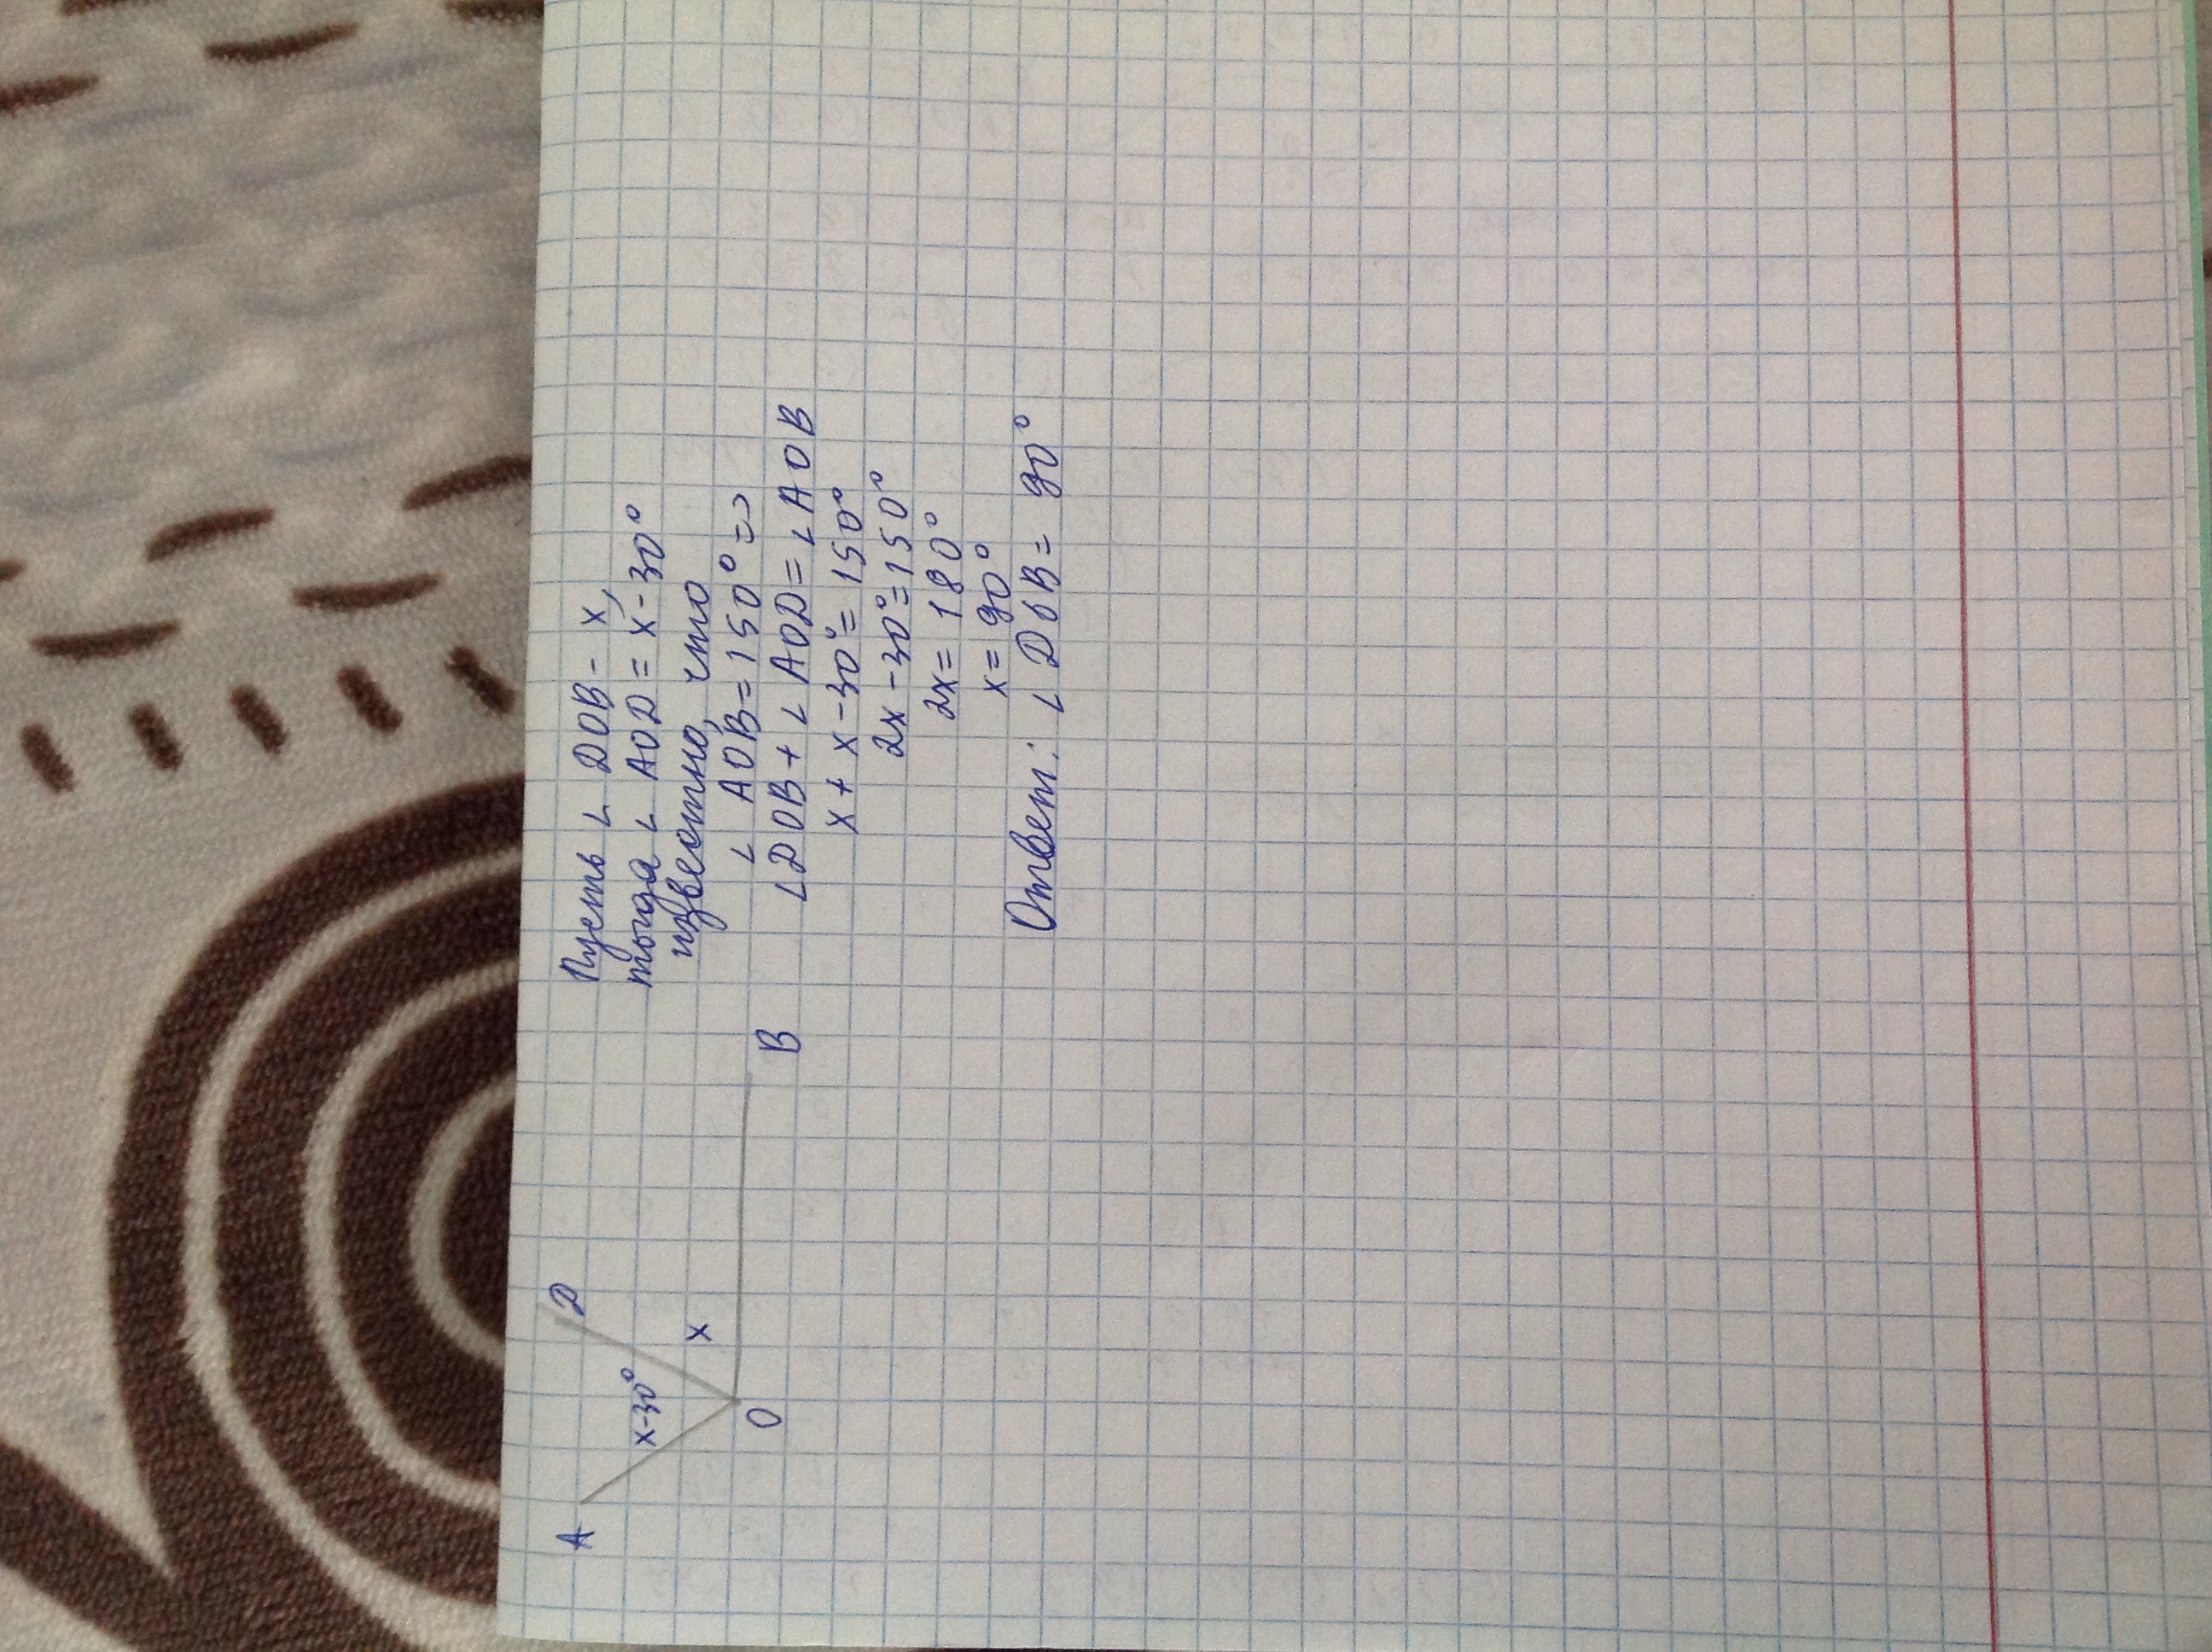 A
D
x-30°
x
O
B
Пусть ∟ DOB - x,
тогда ∟ AOD = x-30°
известно, что
∟ AOB = 150° =>
∟DOB + ∟ AOD = ∟ AOB
x + x - 30° = 150°
2x - 30° = 150°
2x = 180°
x = 90°
Ответ: ∟ DOB = 90°